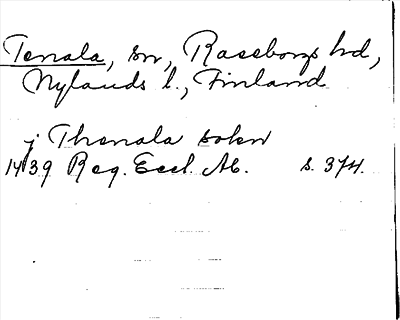 Tenala, sn, Raseborgs hd,
Nylands l., Finland
j Thenala sokn
1439 Reg. Eccl. Ab. s. 374.